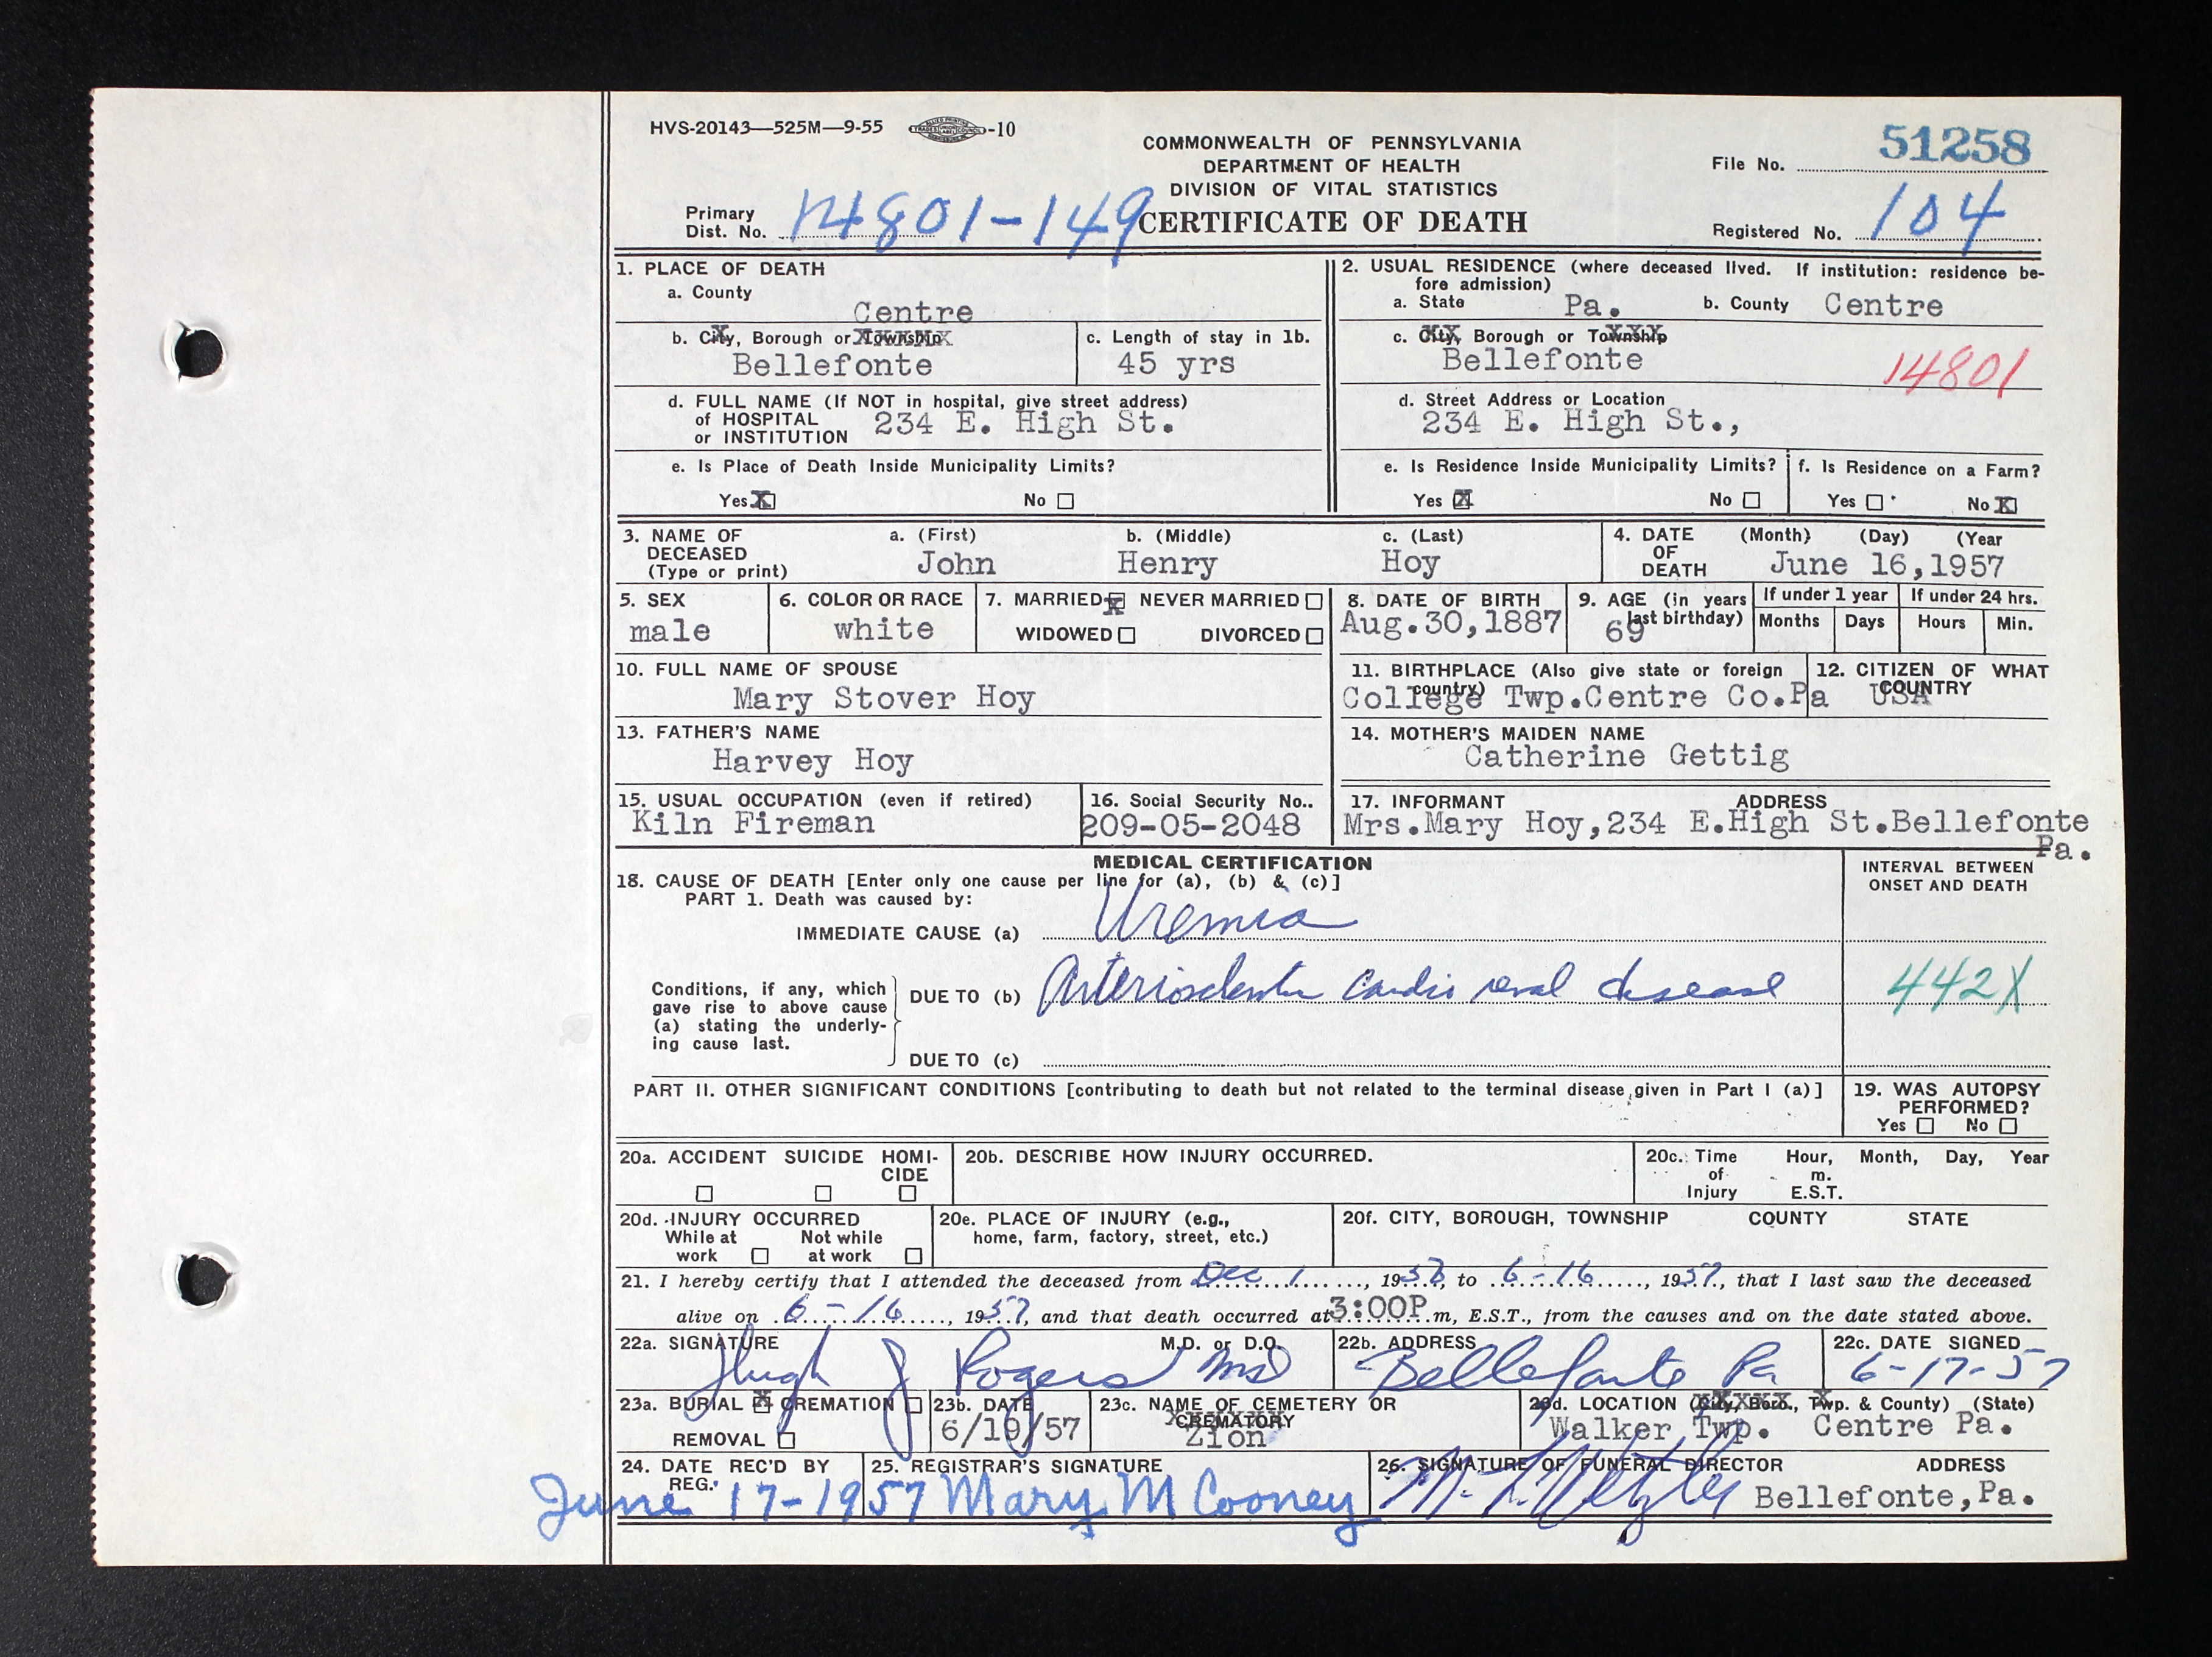 HVS-20143—525M—9-55 -10
COMMONWEALTH OF PENNSYLVANIA
DEPARTMENT OF HEALTH
DIVISION OF VITAL STATISTICS
CERTIFICATE OF DEATH
File No. 51258
Primary Dist. No. 14801-149
Registered No. 104
1. PLACE OF DEATH
a. County
Centre
b. City, Borough or Township
Bellefonte
c. Length of stay in 1b.
45 yrs
d. FULL NAME (If NOT in hospital, give street address)
of HOSPITAL
or INSTITUTION 234 E. High St.
e. Is Place of Death Inside Municipality Limits?
Yes X No
2. USUAL RESIDENCE (where deceased lived. If institution: residence be-
fore admission)
a. State Pa. b. County Centre
c. City, Borough or Township
Bellefonte
14801
d. Street Address or Location
234 E. High St.,
e. Is Residence Inside Municipality Limits? f. Is Residence on a Farm?
Yes X No Yes No X
3. NAME OF DECEASED (Type or print)
a. (First) b. (Middle) c. (Last)
John Henry Hoy
4. DATE OF DEATH (Month) (Day) (Year
June 16,1957
5. SEX
male
6. COLOR OR RACE
white
7. MARRIED X NEVER MARRIED
WIDOWED DIVORCED
8. DATE OF BIRTH
Aug.30,1887
9. AGE (in years last birthday)
69
If under 1 year If under 24 hrs.
Months Days Hours Min.
10. FULL NAME OF SPOUSE
Mary Stover Hoy
11. BIRTHPLACE (Also give state or foreign country)
College Twp.Centre Co.Pa
12. CITIZEN OF WHAT COUNTRY
USA
13. FATHER'S NAME
Harvey Hoy
14. MOTHER'S MAIDEN NAME
Catherine Gettig
15. USUAL OCCUPATION (even if retired)
Kiln Fireman
16. Social Security No..
209-05-2048
17. INFORMANT ADDRESS
Mrs.Mary Hoy,234 E.High St.Bellefonte
Pa.
MEDICAL CERTIFICATION
18. CAUSE OF DEATH [Enter only one cause per line for (a), (b) & (c)]
PART 1. Death was caused by:
IMMEDIATE CAUSE (a) Uremia
INTERVAL BETWEEN
ONSET AND DEATH
Conditions, if any, which
gave rise to above cause
(a) stating the underly-
ing cause last.
DUE TO (b) Arteriosclerotic Cardio renal disease
442X
DUE TO (c)
PART II. OTHER SIGNIFICANT CONDITIONS [contributing to death but not related to the terminal disease given in Part I (a)]
19. WAS AUTOPSY
PERFORMED?
Yes No
20a. ACCIDENT SUICIDE HOMI-
CIDE
20b. DESCRIBE HOW INJURY OCCURRED.
20c. Time Hour, Month, Day, Year
of m.
Injury E.S.T.
20d. INJURY OCCURRED
While at Not while
work at work
20e. PLACE OF INJURY (e.g.,
home, farm, factory, street, etc.)
20f. CITY, BOROUGH, TOWNSHIP COUNTY STATE
21. I hereby certify that I attended the deceased from Dec 1, 19 to 6-16, 1957, that I last saw the deceased
alive on 6-16, 1957, and that death occurred at 3:00P m, E.S.T., from the causes and on the date stated above.
22a. SIGNATURE M.D. or D.O.
Hugh J Rogers MD
22b. ADDRESS
Bellefonte Pa
22c. DATE SIGNED
6-17-57
23a. BURIAL X CREMATION
REMOVAL
23b. DATE
6/19/57
23c. NAME OF CEMETERY OR
CREMATORY
Zion
23d. LOCATION (City, Boro., Twp. & County) (State)
Walker Twp. Centre Pa.
24. DATE REC'D BY
REG.
June 17-1957
25. REGISTRAR'S SIGNATURE
Mary M Cooney
26. SIGNATURE OF FUNERAL DIRECTOR ADDRESS
Wetzler Bellefonte,Pa.